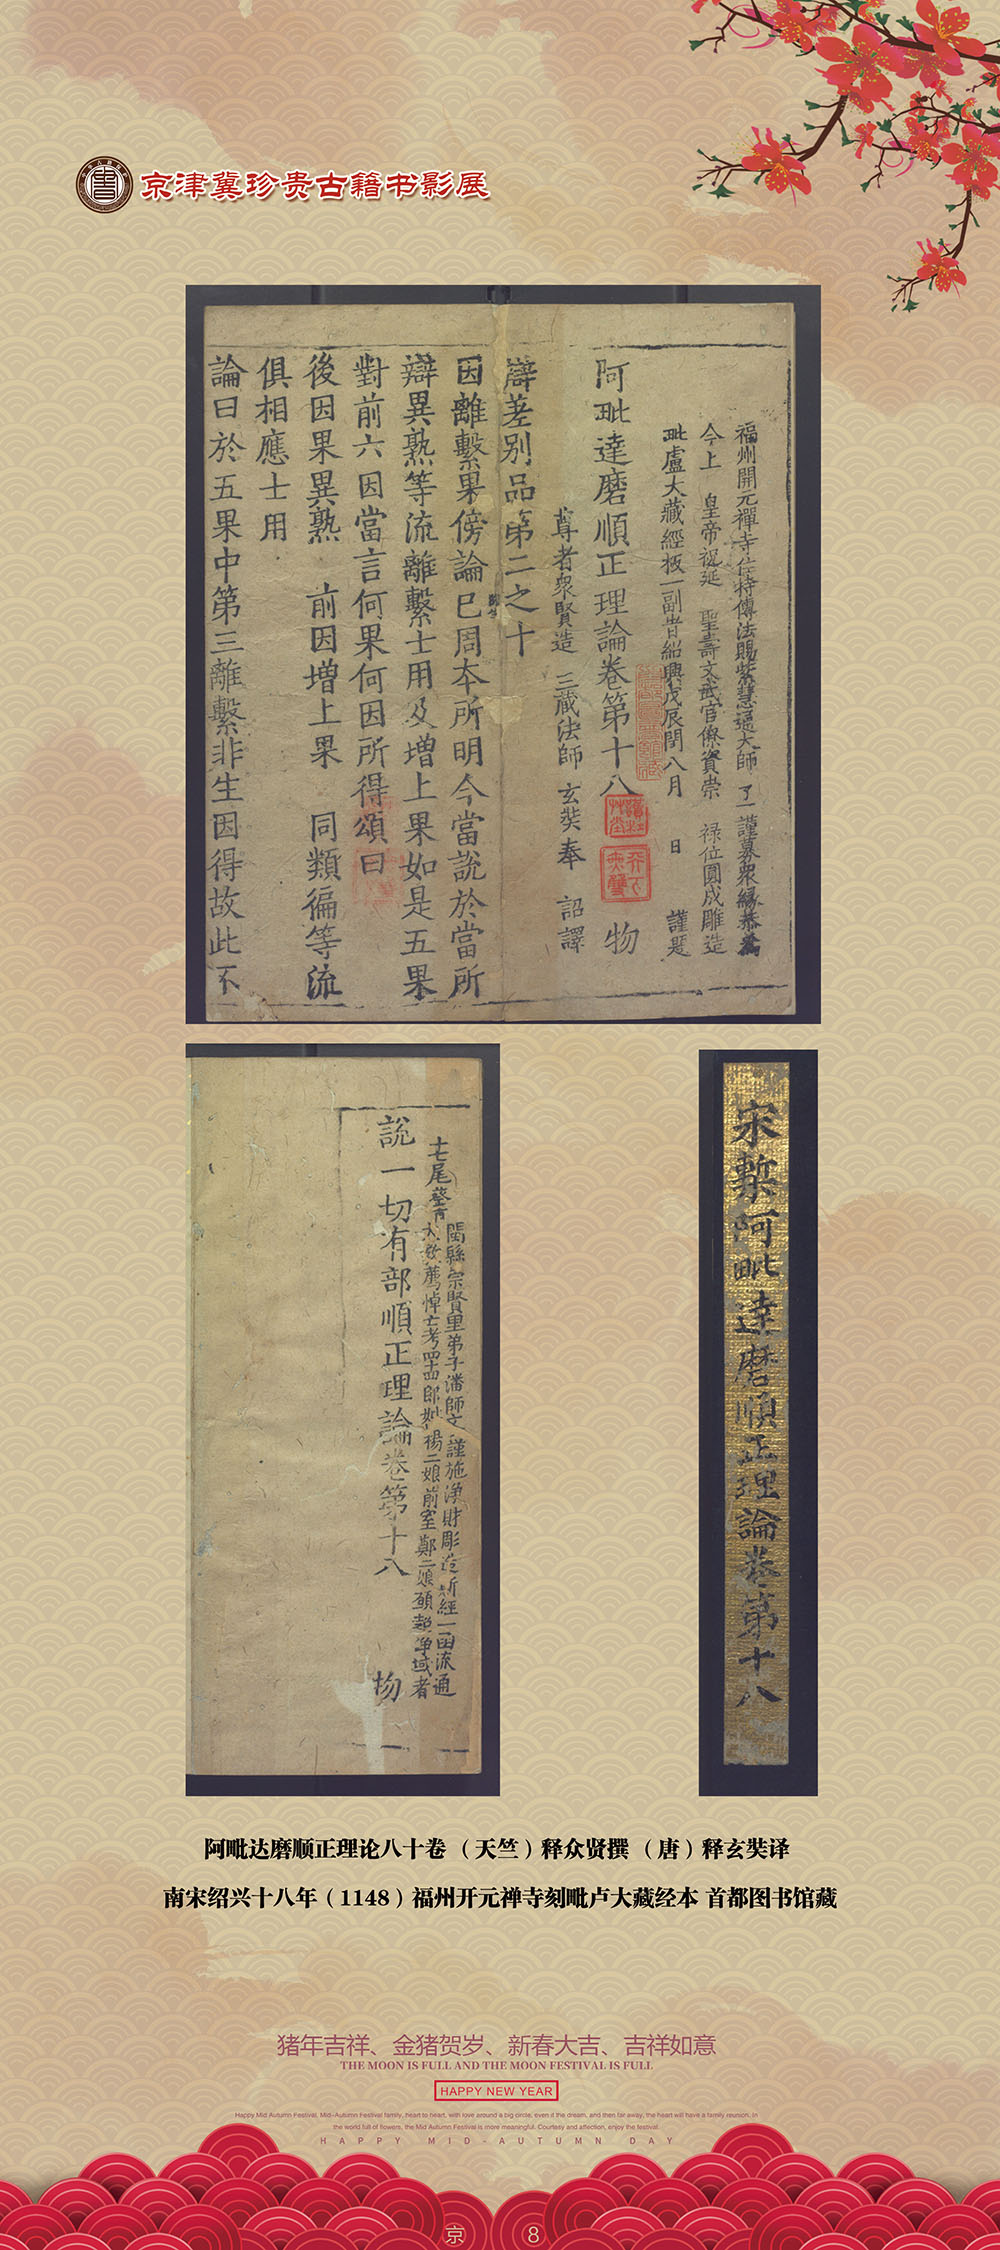 京津冀珍贵古籍书影展
福州開元禪寺住持傳法賜紫慧通大師 了一謹募衆緣恭為
今上 皇帝祝延 聖壽文武官僚資崇 禄位圓成雕造
毗盧大藏經板一副旹紹興戊辰閏八月 日 謹題
阿毗達磨順正理論卷第十八 物
尊者衆賢造 三藏法師 玄奘奉 詔譯
辯差别品第二之十
因離繫果傍論已周本所明今當說於當所
辯異熟等流離繫士用及增上果如是五果
對前六因當言何果何因所得頌曰
後因果異熟 前因增上果 同類徧等流
俱相應士用
論曰於五果中第三離繫非生因得故此不
閩縣宗賢里弟子潘師文謹施淨財彫造新經一函流通
說一切有部順正理論卷第十八 物
宋槧阿毗達磨順正理論卷第十八
阿毗达磨顺正理论八十卷 （天竺）释众贤撰 （唐）释玄奘译
南宋绍兴十八年（1148）福州开元禅寺刻毗卢大藏经本 首都图书馆藏
猪年吉祥、金猪贺岁、新春大吉、吉祥如意
THE MOON IS FULL AND THE MOON FESTIVAL IS FULL
HAPPY NEW YEAR
Happy Mid Autumn Festival, Mid-Autumn Festival family, heart to heart, with love around a big circle, even if the dream, and then far away, the heart will have a family reunion. In
the world full of flowers, the Mid Autumn Festival is more meaningful. Courtesy and affection, enjoy the festival.
HAPPY MID-AUTUMN DAY
京 8